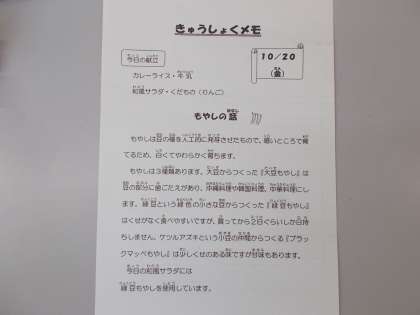 きゅうしょくメモ
今日の献立
10/20
(金)
カレーライス・牛乳
和風サラダ・くだもの(りんご)
もやしの話
もやしは豆の種を人工的に発芽させたもので、暗いところで育
てるため、白くてやわらかく育ちます。
もやしは3種類あります。大豆からつくった『大豆もやし』は
豆の部分に歯ごたえがあり、沖縄料理や韓国料理、中華料理にし
ます。緑豆という緑色の小さな豆からつくった『緑豆もやし』
はくせがなく食べやすいですが、買ってから2日ぐらいしか日持
ちしません。ケツルアズキという小豆の仲間からつくる『ブラッ
クマッペもやし』は少しくせのある味ですが甘味もあります。
今日の和風サラダには
緑豆もやしを使用しています。